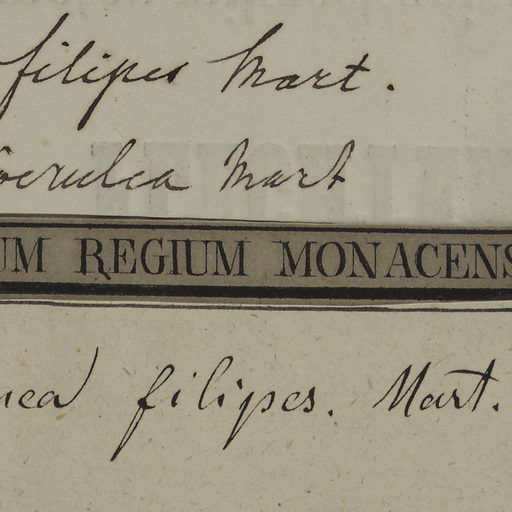 filipes Mart.
coerulea Mart
UM REGIUM MONACENS
nea filipes. Mart.